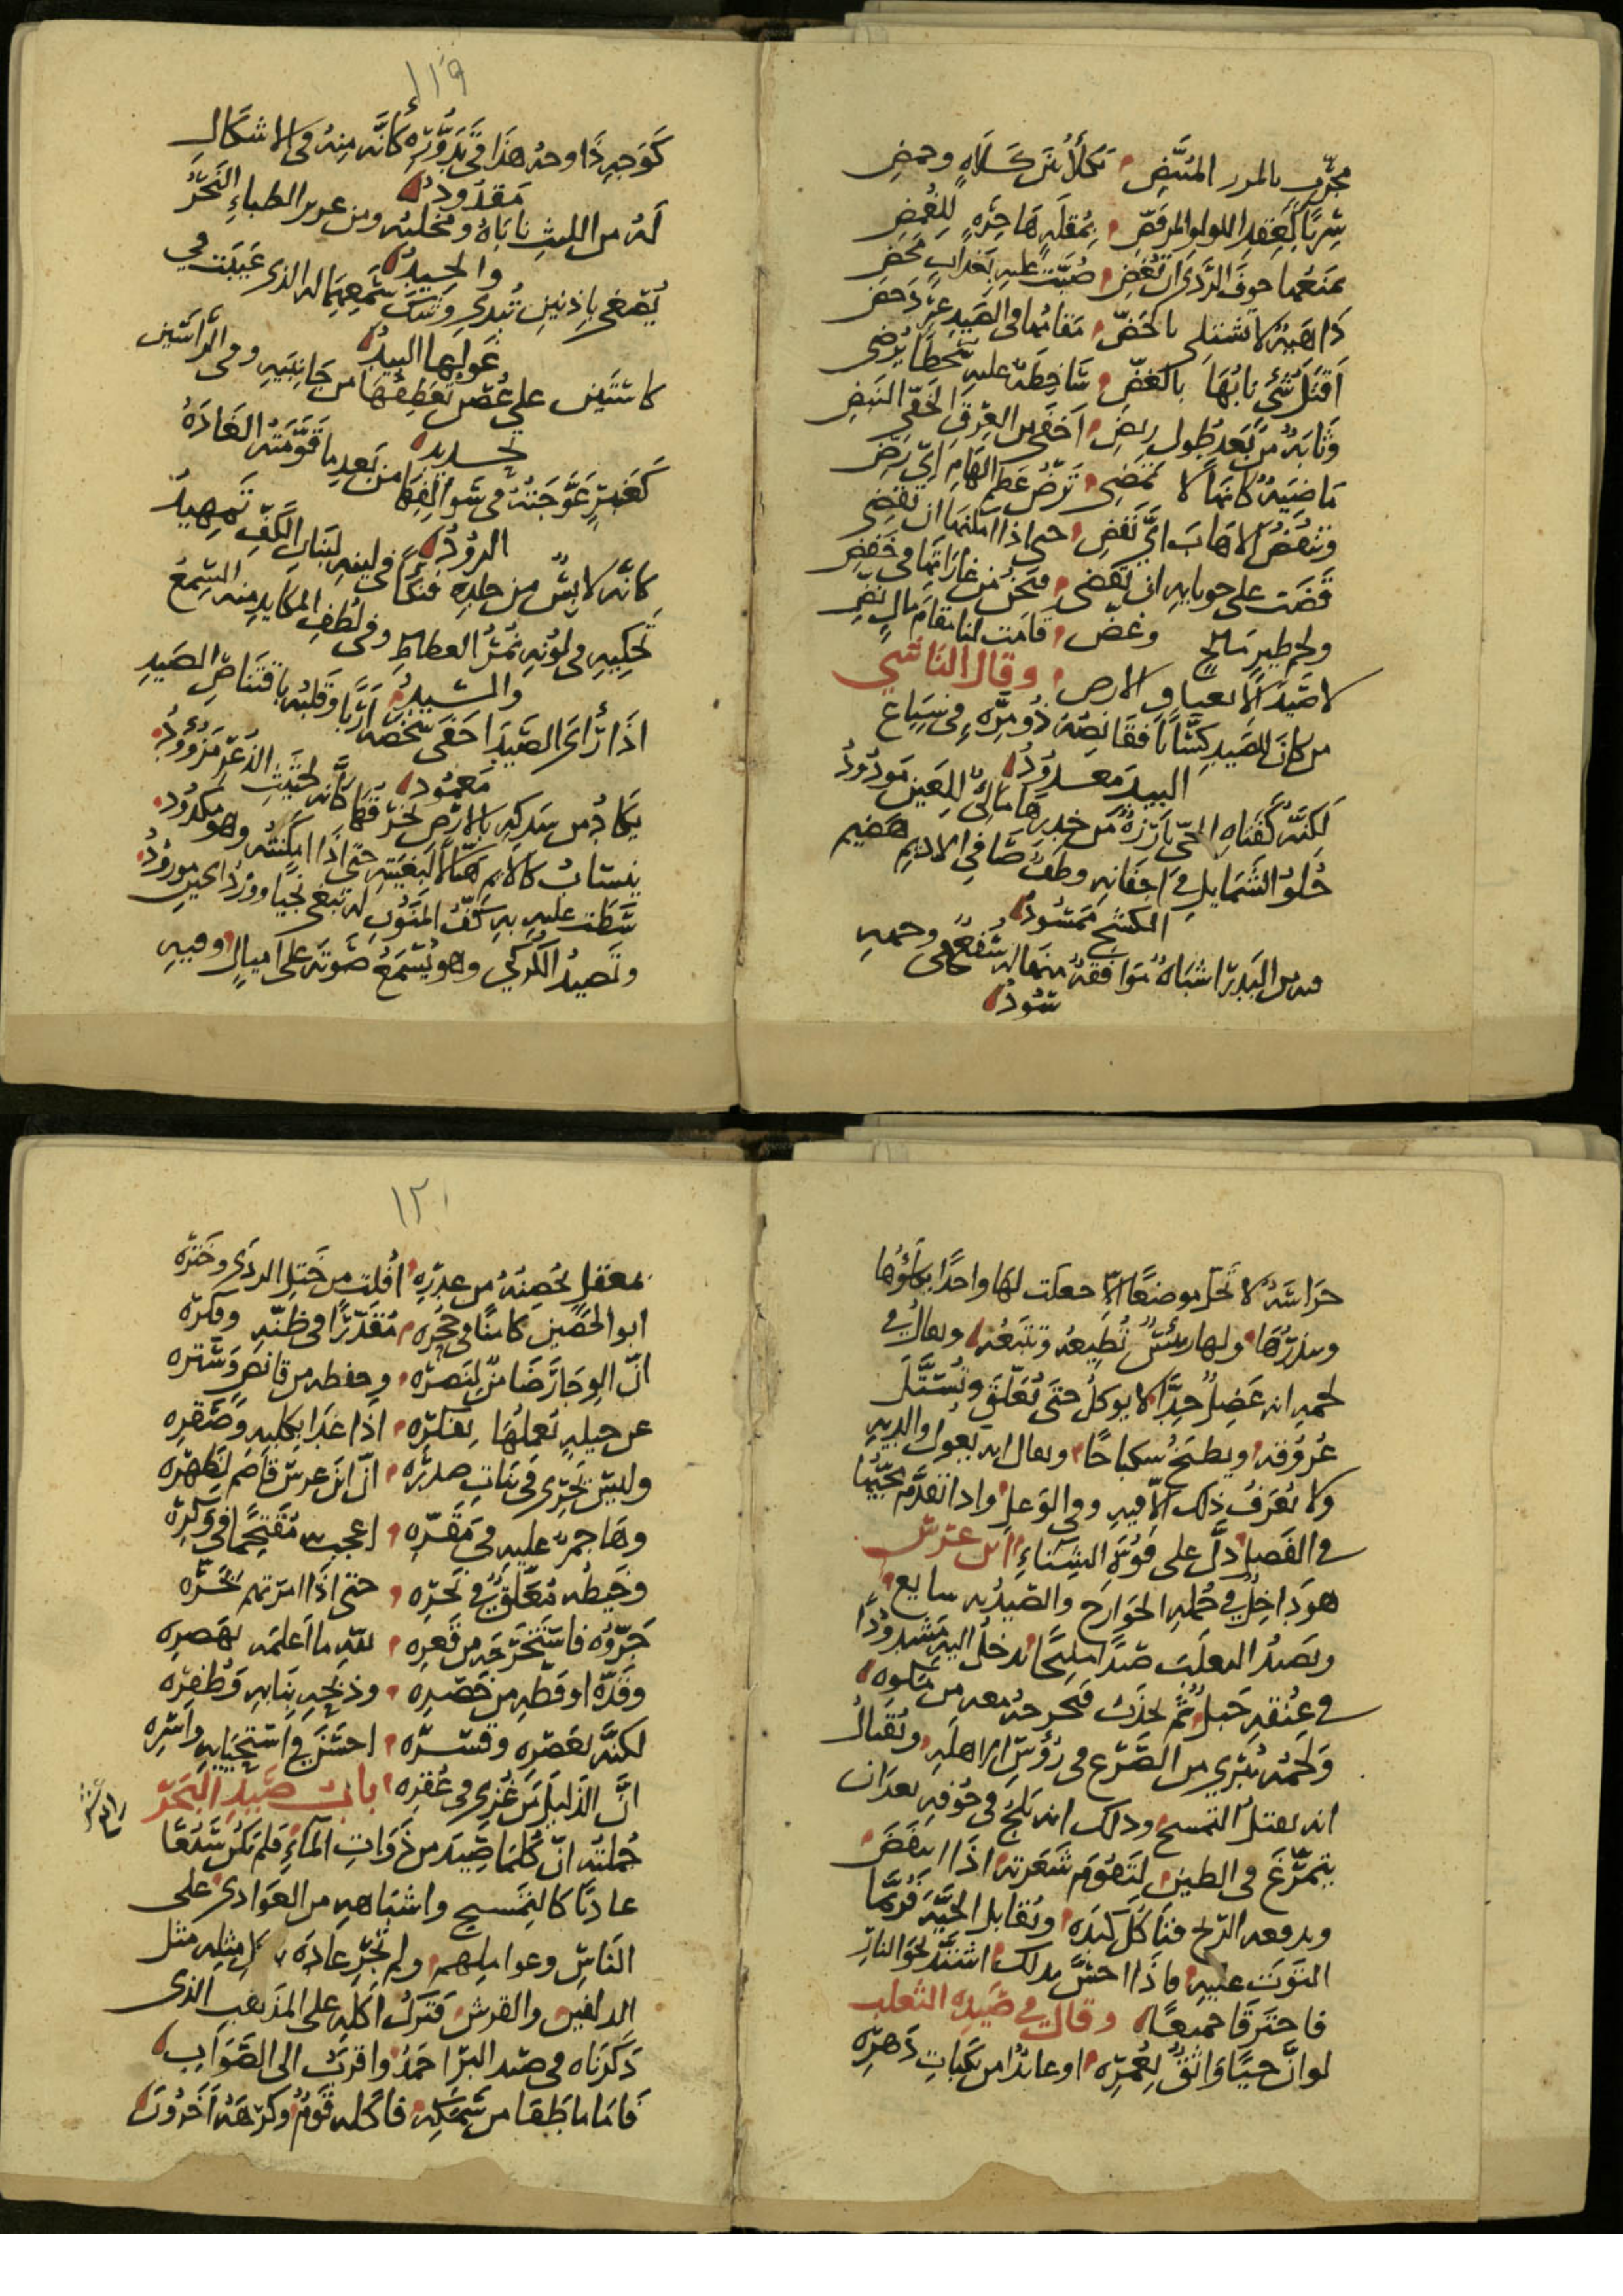 مجرب بالمرر المنتض تكلأ من كلاه وحمض
شربا كعقد اللولو المرفض بمقلة هاجرة للغمض
تمنعها خوف الردى ان تغض صبت عليه بعذاب محض
داهية لا تشتلى بالحض مقامها فى الصيد غير دحض
اقتل شى نابها بالعض شاخطة عليه سخطا يرضى
وثابة من بعد طول ربض اخفى من العرق الخفى النبض
ماضية كانها لا تمضى ترض عظم الهام اى رض
وتنفض الاهاب اى نفض حتى اذا امكنها ان تقضى
قضت على حوبايه ان تقضى فنحن من غاراتها فى خفض
ولحم طير سابح وغض قامت لنا مقام مال نض
لا صيد الا بعبا و الارض وقال الناشي
من كان للصيد كسابا فقانصه ذو مرة فى سباع
البيد معدود
لكنه كفتاه الحى بارزة من خدرها مالئ للعين مودود
حلو الشمايل فى اجفانه وطف صافى الاديم هضيم
الكشح ممسود
فيه من البدر اشباه موافقه منها له سفع فى وجهه
سود
١١٩
كوجه ذا وجه هذا فى تدوره كانه منه فى الاشكال
مقدود
له من الليث ناباه ومخلبه ومن غرير الظباء النحر
والجيد
يصغى باذنين تبدى وشك سمعهما له الذى غيبت فى
غولها البيد
كاستين على غصن تعطفها من جانبيه وفى الراسين
تحديد
كعنبر عوجته فى سوالفها من بعد ما قومته الغاده
الرود
كانه لابس من جلده فنكا فى لينه لبنان الكف تمهيد
تحكيه فى لونه نمر العطاط وفى لطف المكايد منه السمع
والسيد
اذا رأى الصيد اخفى شخصه اربا وقلبه باقتناص الصيد
معمود
يكاد من سدكه بالارض يخرقها كانه لحثيث الذعر مزؤود
ينساب كالايم هتالا لبغيته حتى اذا امكنته وهو مكدود
شطت عليه به كف المنون له تبغى نجيا وورد الحين مورود
ونصيد الكركي وهو يسمع صوته على اميال وفيه
حراسة لا تحل موضعا الا جعلت لها واحدا يكلؤها
ويذرها ولها رئيس تطيعه وتتبعه ويقال فى
لحمه انه عضل جدا لا يوكل حتى تعلق وتستل
عروقه ويطبخ سكباجا ويقال انه يعول والديه
ولا يعرف ذلك الا فيه وفى الوعل واذا تقدم مجيئها
فى الفصل دل على قوة الشتاء ابن عرس
هو داخل فى جملة الجوارح والصيد به سايع
ويصيد الثعلب صيدا مليحا يدخل اليه مشدودا
فى عنقه حبل ثم يجذب فيخرجه معه من مكوه
ولحمه يبرى من الصرع فى رؤس الراهله ويقال
انه يقتل التمسح وذلك انه يلج فى جوفه بعد ان
يتمرغ فى الطين لتقوم شعرته اذا انتفض
ويدفعه الريح فياكل كبده ويقابل الحية فربما
التوت عليه فاذا احس بذلك اشتد نحو النار
فاحترقا جميعا وقال فى صيده الثعلب
لو ان حيا واثق لعمره او عائذا من نكبات دهره
١٢٠
بمعقل يحصنه من عدره افلت من ختل الردى وختره
ابو الحصين كامنا فى جحره مقدرا فى ظنه وفكره
ان الوجار ضامن لنصره وحفظه من قانص وستره
عن حيلة تعملها بفكره اذا غدا بكلبه وصقره
وليس يجرى فى بنات صدره ان ابن عرس قاصم لظهره
وهاجم عليه فى مقره اعجب به مقتحما فى وكره
وخيطه معلق فى نحره حتى اذا امرتهم بجره
جروه فاستخرجه من قعره لله ما اعلمه بهصره
وقده او قطه من خصره وذبحه بنابه وظفره
لكنه بعصره وقسره احسن فى استحيايه واسره
ان الذليل من غزى فى عقره باب صيد البحر
جملته ان كلما صيد من ذوات الماء فلم يكن سبعا
عاديا كالتمسيح واشباهه من العوادى على
الناس وعواملهم ولم تجر عاده كل مثله مثل
الدلفين والقرش فترك اكله على المذهب الذى
ذكرناه فى صيد البر احمد واقرب الى الصواب
فاما ما طفا من سمكه فاكله قوم وكرهه اخرون